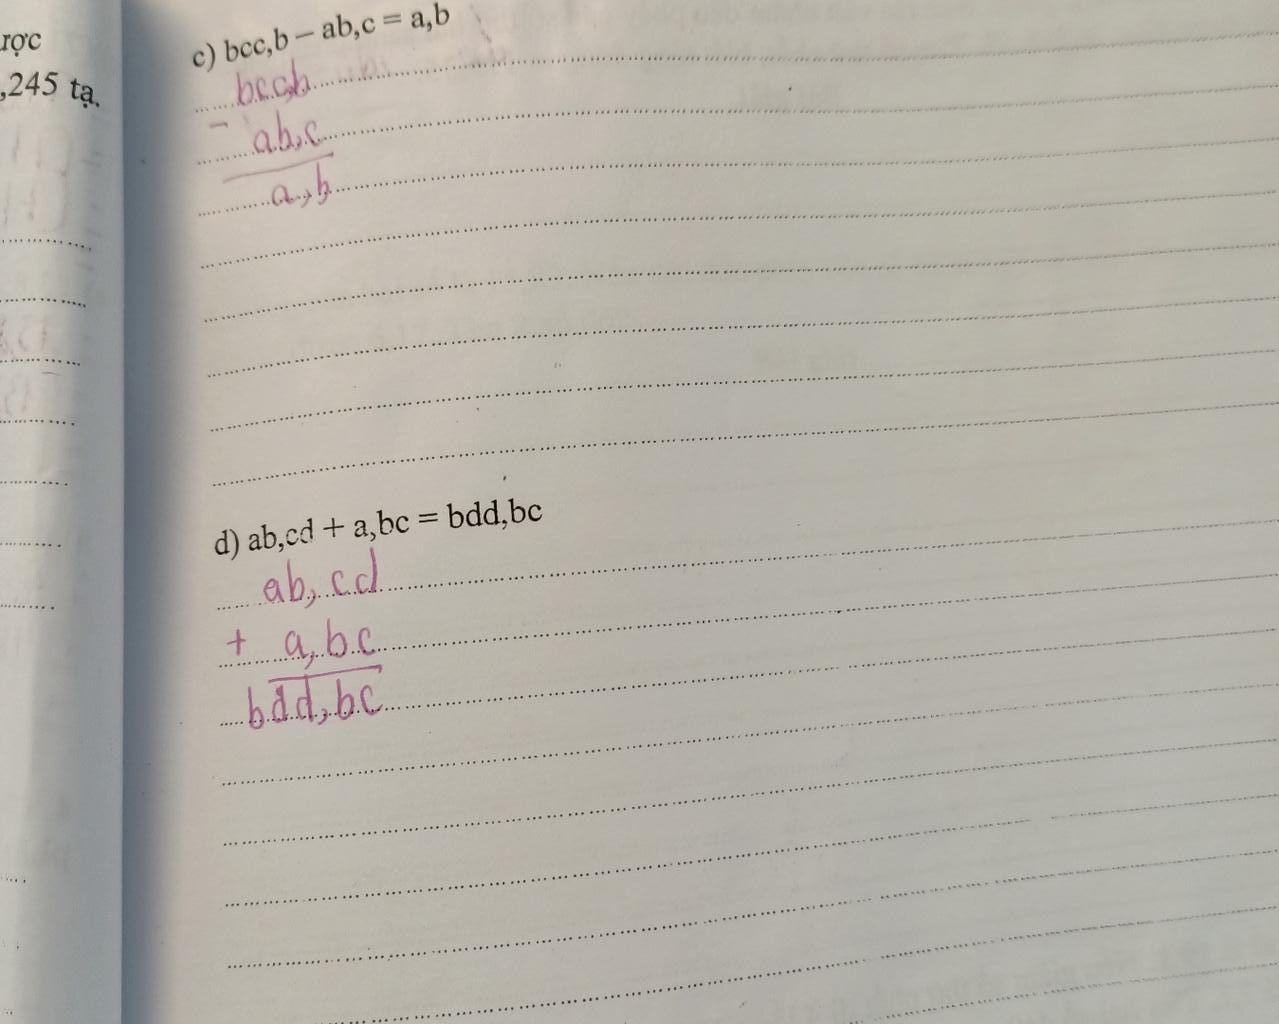 ược
,245 tạ.
c) bcc,b – ab,c = a,b
bcc,b
–
ab,c
a,b
d) ab,cd + a,bc = bdd,bc
ab,cd
+ a,bc
bdd,bc